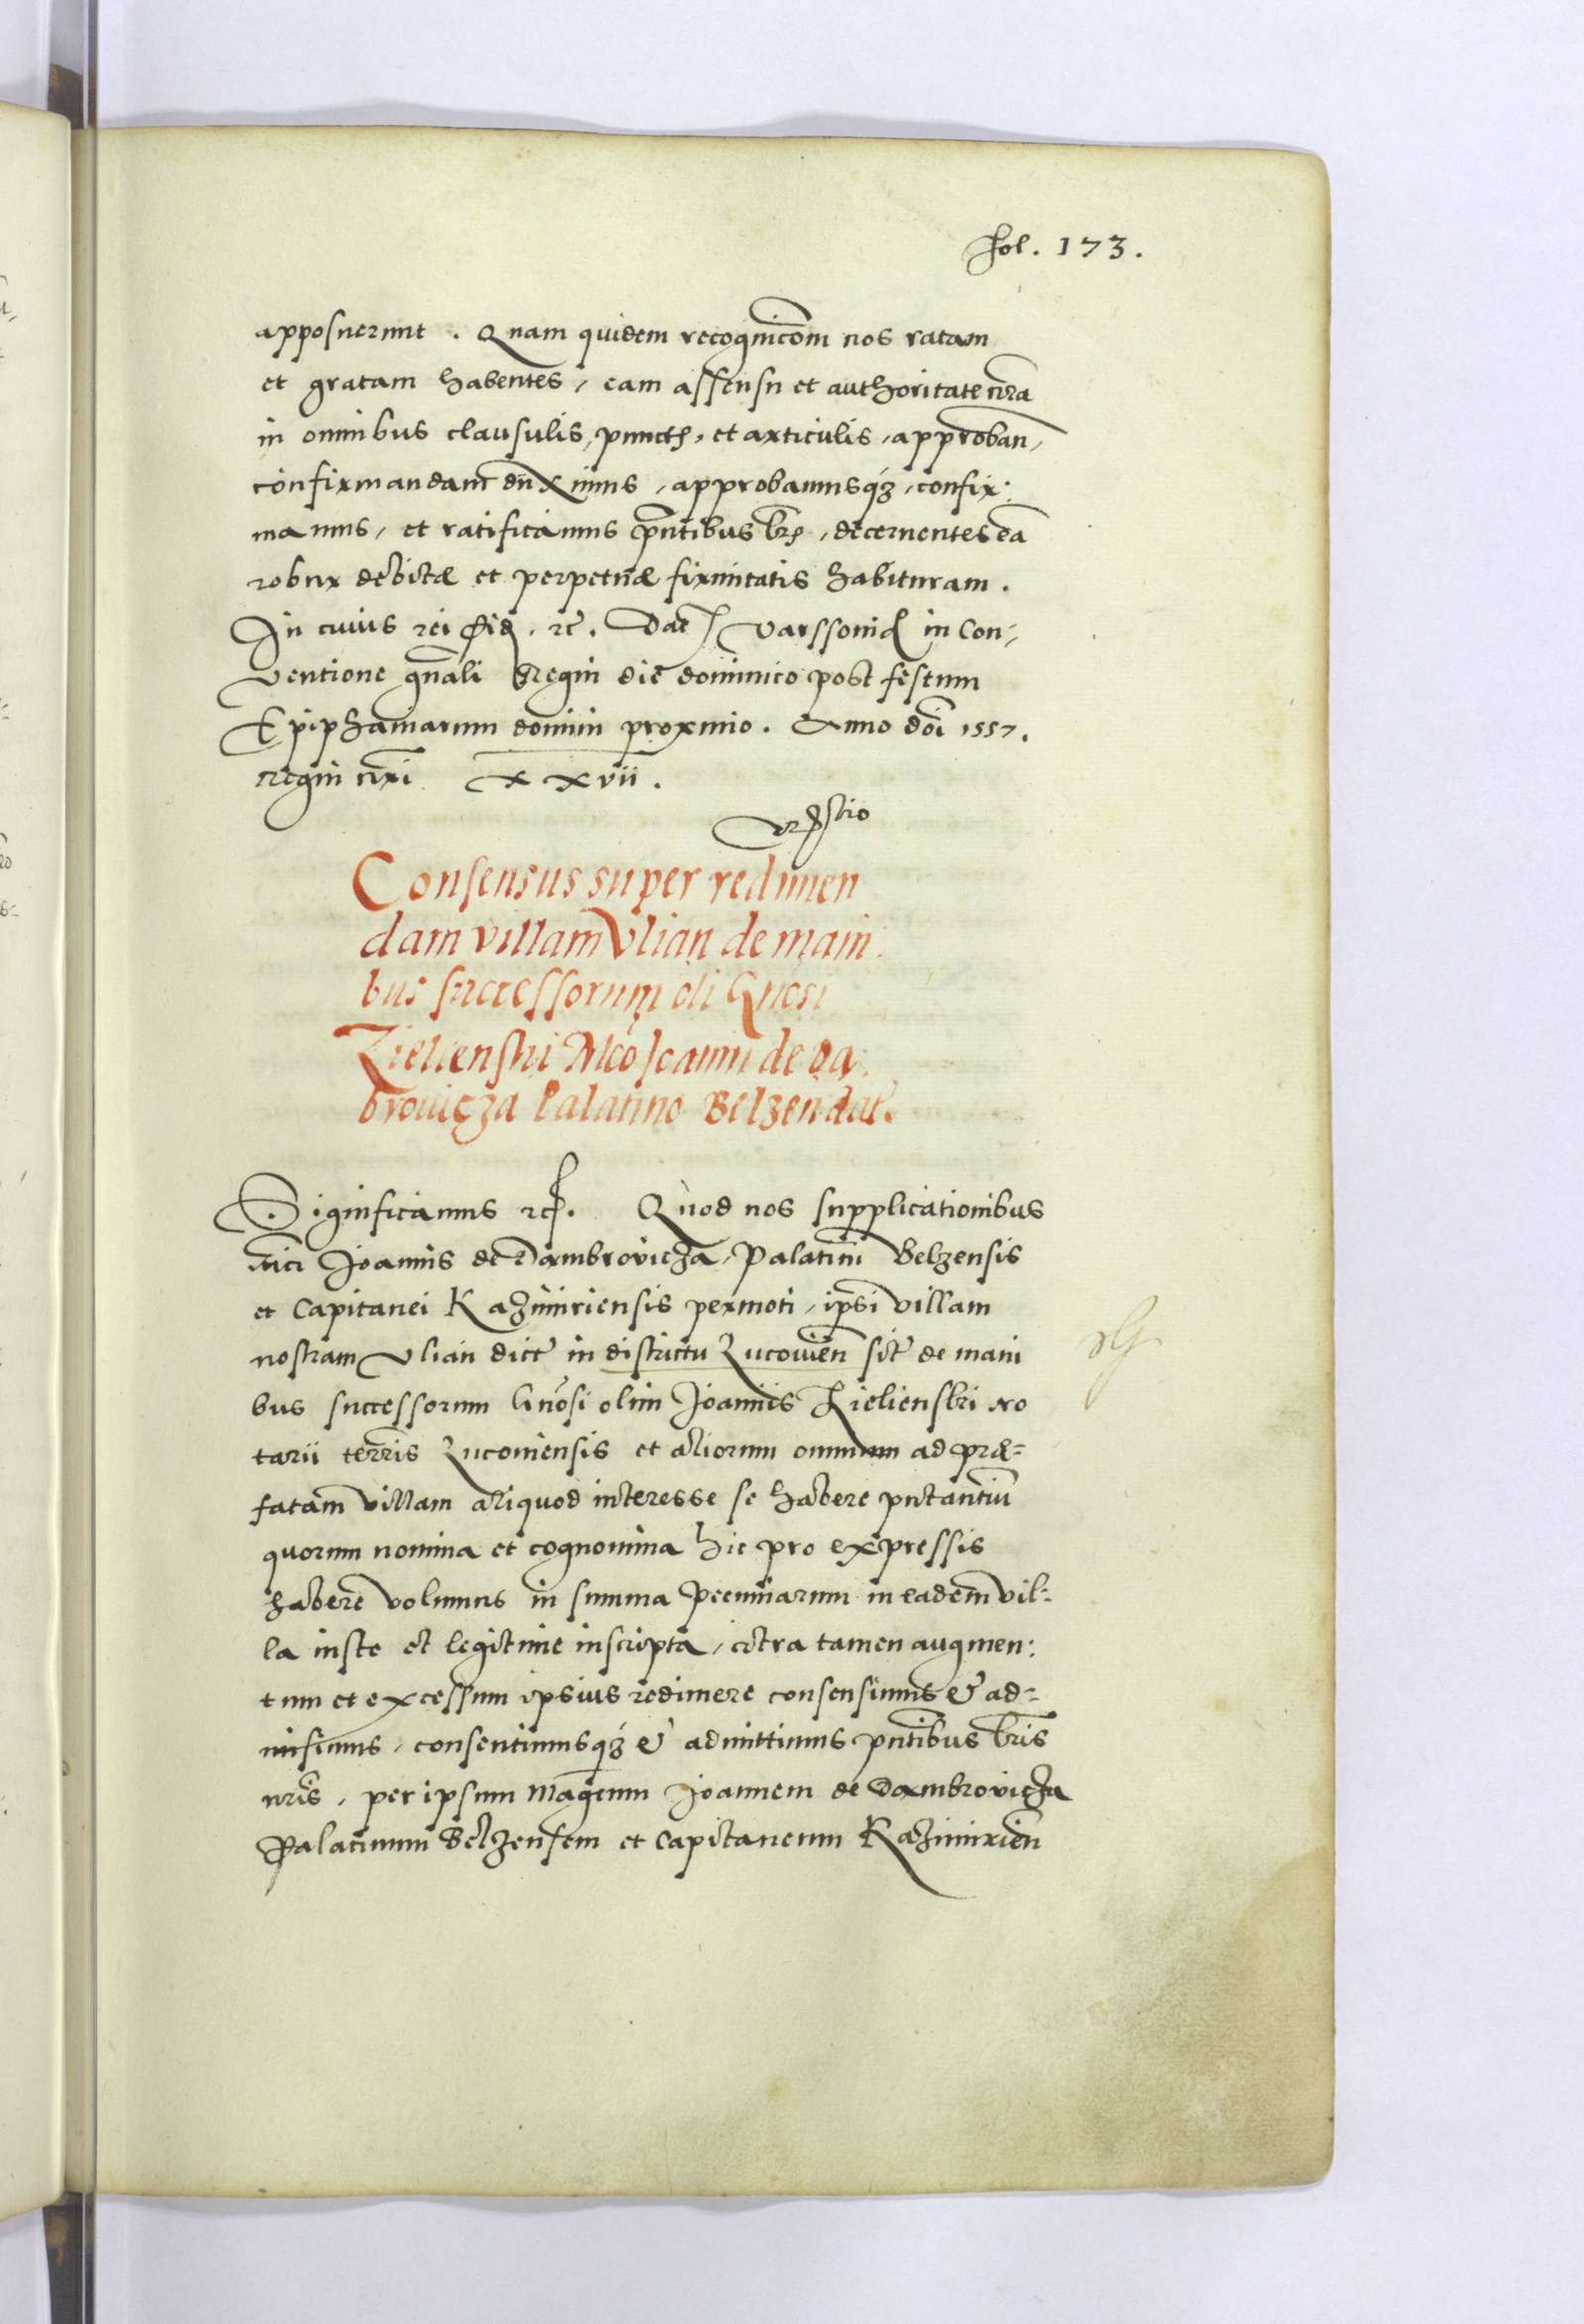 fol. 173.
apposuerunt. Quam quidem recognicõem nos ratam
et gratam habentes, eam assensu et authoritate nr̃a
in omnibus clausulis, punctis, et articulis, approban,
confirmandam duximus, approbamusqʒ, confir:
mamus, et ratificamus pñtibus lr̃is, decernentes eã
robur debitæ et perpetuæ firmitatis habituram.
In cuius rei fid. rc. Dat Varssoniæ in Con-
ventione gñali Regni die dominico post festum
Epiphaniarum domini proximo. Anno doi 1557.
regni nr̃i XXvii.
Consensus super redimen
dam villam Vlian de mani
bus successorum oli Gnosi
Zielienski Mco Ioanni de Da
browicza Palatino Belzen dat.
Significamus rc. Quod nos supplicationibus
Mci Joannis de Dambrovicza, Palatini Belzensis
et Capitanei Kazimiriensis permoti, ipsi villam
nostram Vlian dict in districtu Lucovien sit de mani
bus successorum Gnosi olim Joannis Zielienski No
tarii terris Lucoviensis et aliorum omnium ad præ-
fatam villam aliquod interesse se habere putantium
quorum nomina et cognomina hic pro expressis
habere volumus in summa pecuniarum in eadem vil:
la iuste et legitime inscripta, citra tamen augmen:
tum et excessum ipsius redimere consensimus & ad-
misimus, consentimusqʒ & admittimus pñtibus lr̃is
nr̃is, per ipsum Magcum Joannem de Dambrovicza
Palatinum Belzensem et Capitaneum Kazimirien